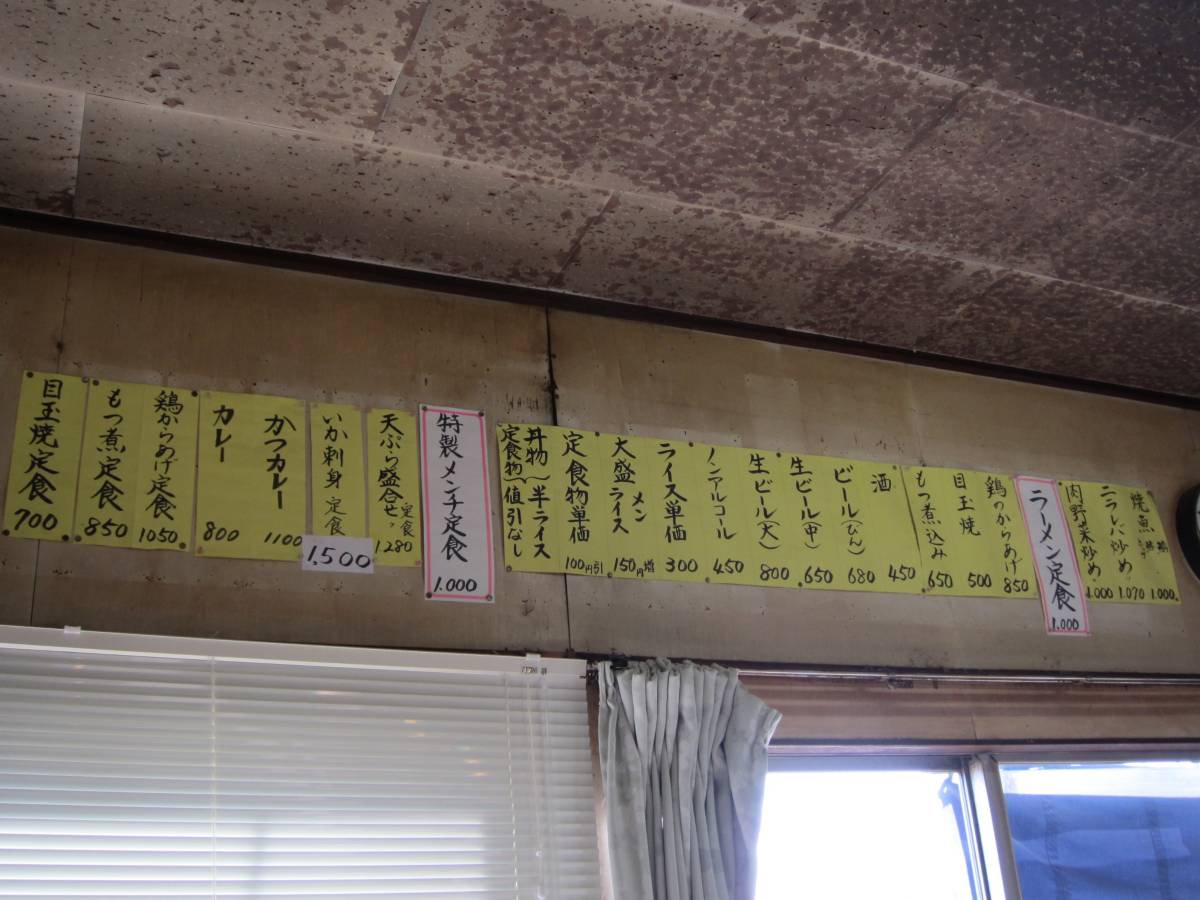 焼魚 1.000
ニラレバ炒め 1.070
肉野菜炒め 1.000
ラーメン定食 1.000
鶏のからあげ 850
目玉焼 500
もつ煮込み 650
酒 450
ビール(びん) 680
生ビール(中) 650
生ビール(大) 800
ノンアルコール 450
ライス単価 300
大盛 メン ライス 150円増
定食物単価 100円引
丼物 半ライス
定食物 値引なし
特製メンチ定食 1.000
天ぷら盛合せ定食 1280
いか刺身定食 1,500
かつカレー 1100
カレー 800
鶏からあげ定食 1050
もつ煮定食 850
目玉焼定食 700